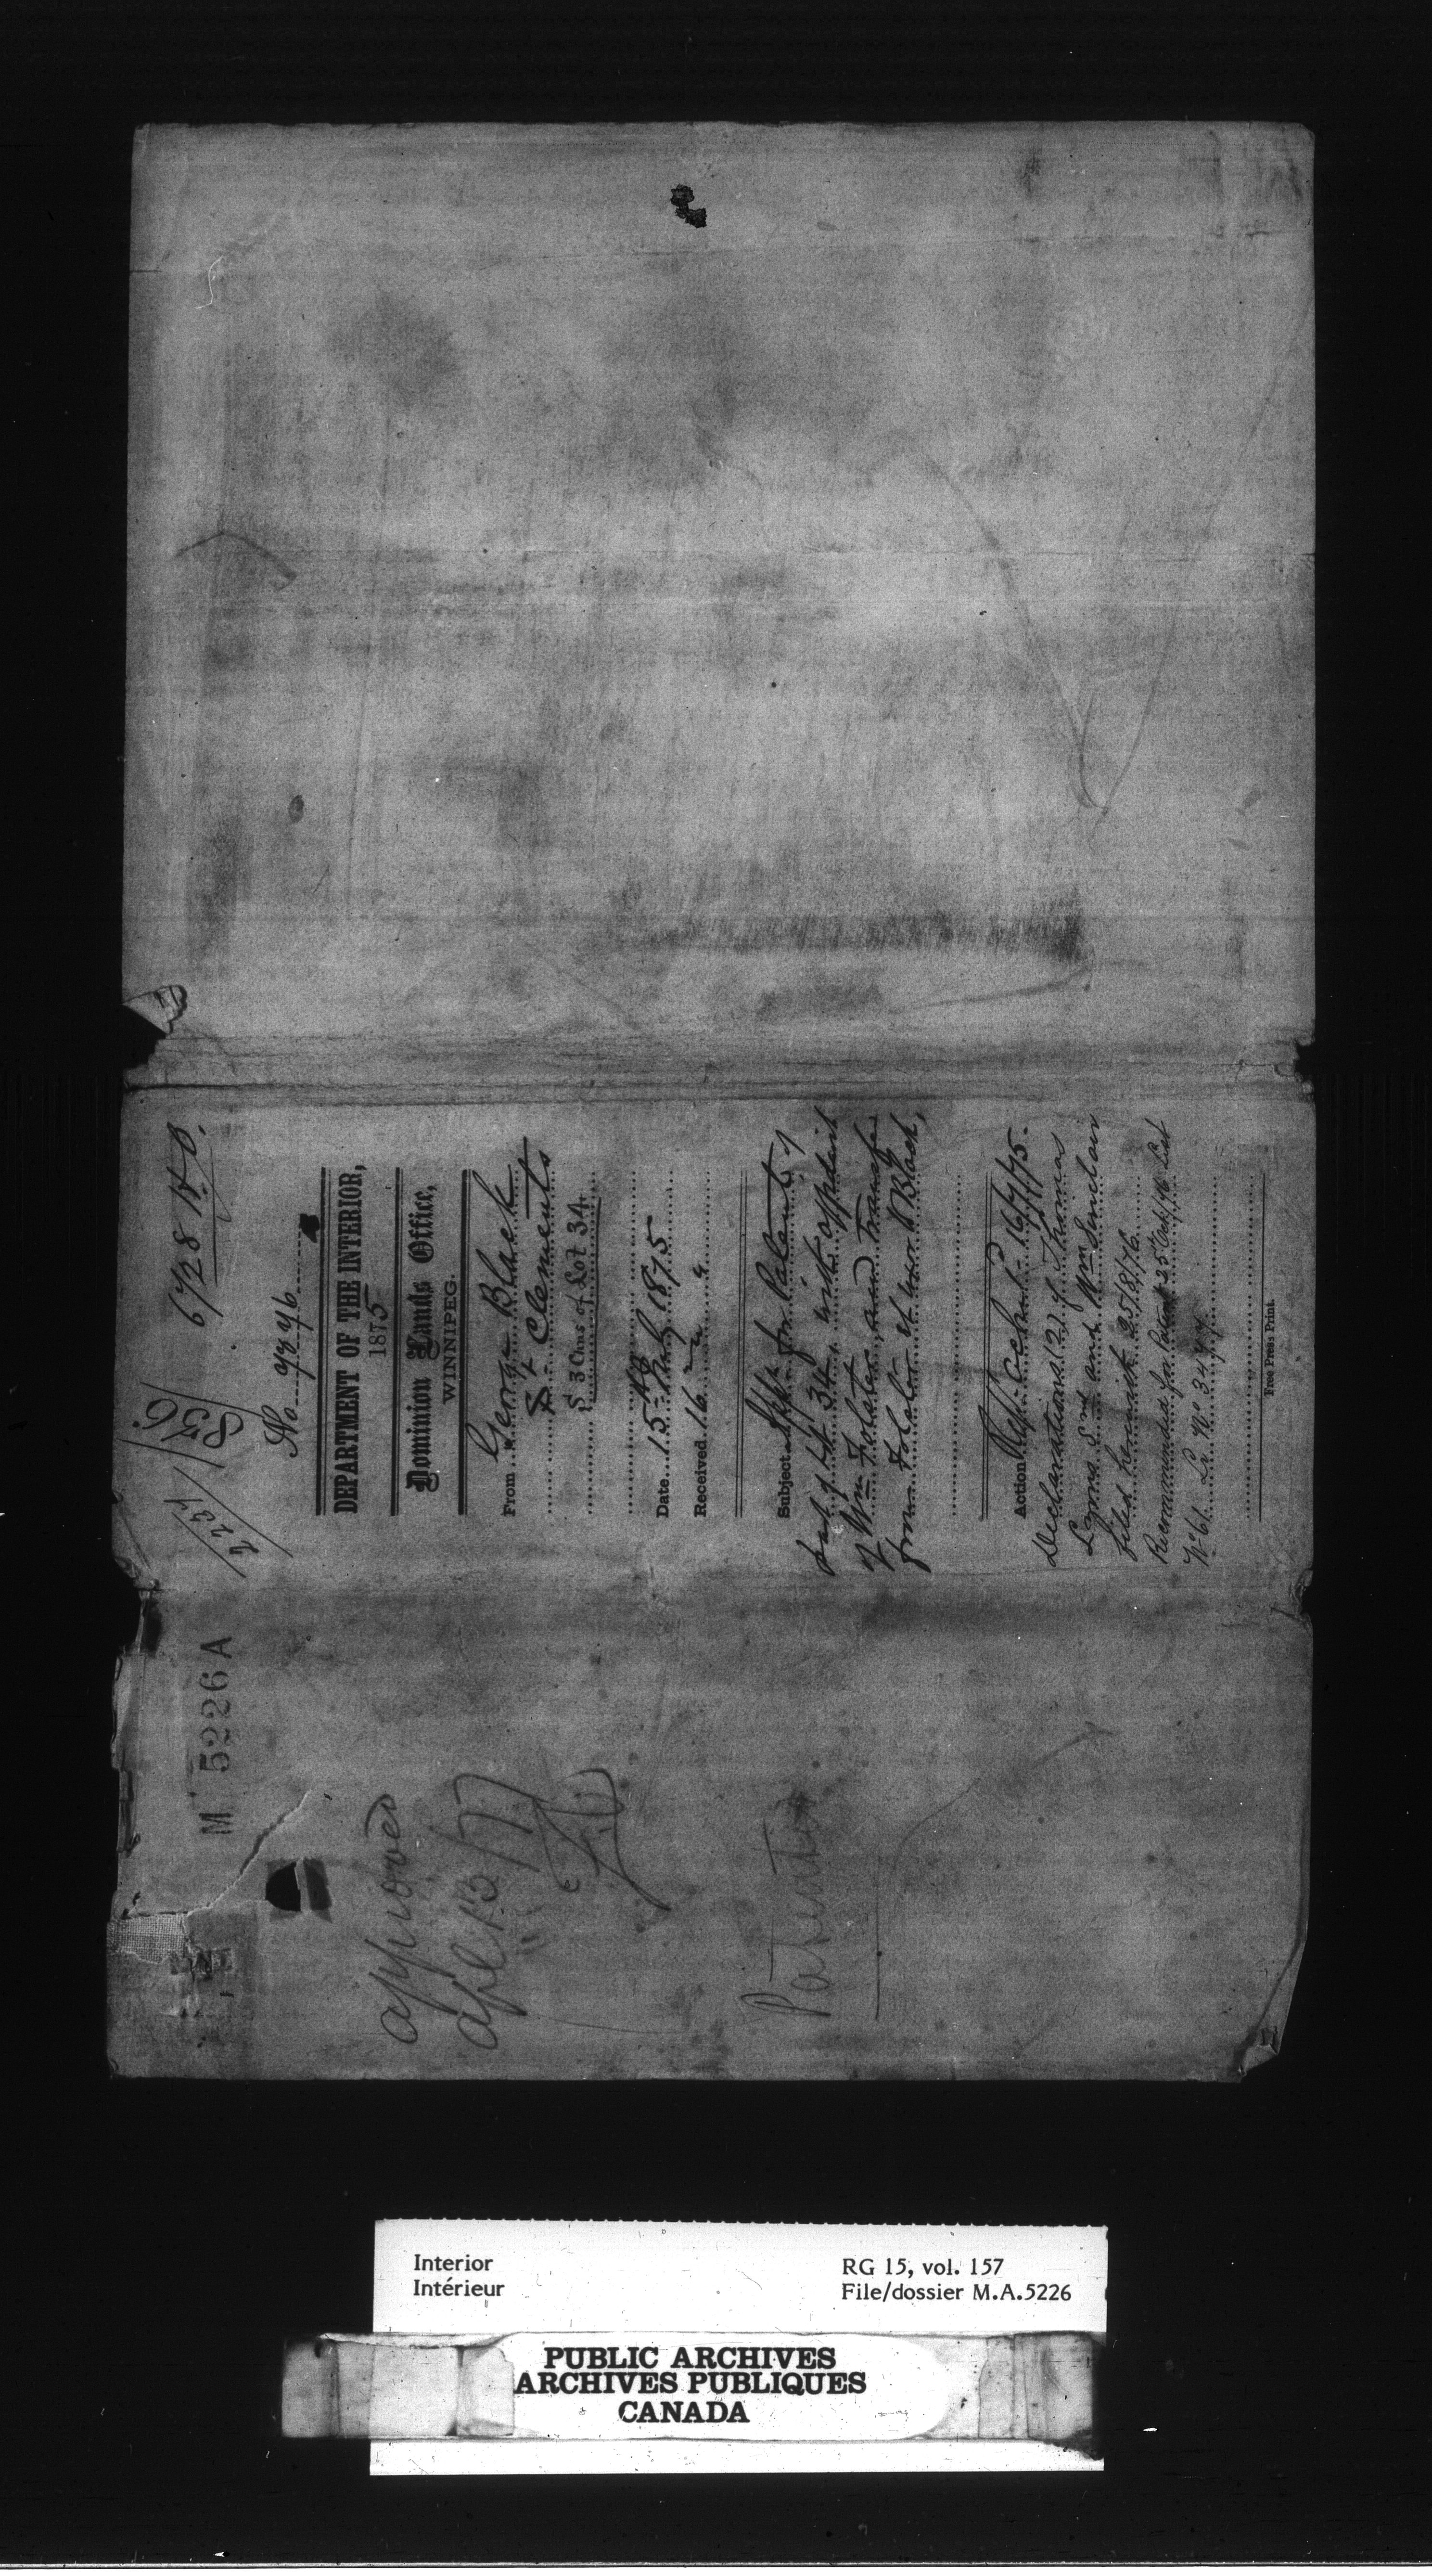 6728 H.B.
2237/836
No. 9846
DEPARTMENT OF THE INTERIOR,
1875
Dominion Lands Office,
WINNIPEG.
From George Black
St Clements
S 3 Chns of Lot 34
Date 15 July 1875
Received 16 " "
Subject Appn for Patent of
part of Lot 34 with affidavit
of Wm Folster and Transfer
from Folster et uxor to Black,
Action Rept. ackd. 16/7/75.
Declarations (2) of Thomas
Lyons Snr and Wm Sinclair
filed herewith 25/8/76
Recommended for Patent 25 Oct/76 List
No 61. Lr. No 3477
Free Press Print.
M 5226 A
approved
Apl 13/77
Patented
Interior
Intérieur
RG 15, vol. 157
File/dossier M.A.5226
PUBLIC ARCHIVES
ARCHIVES PUBLIQUES
CANADA